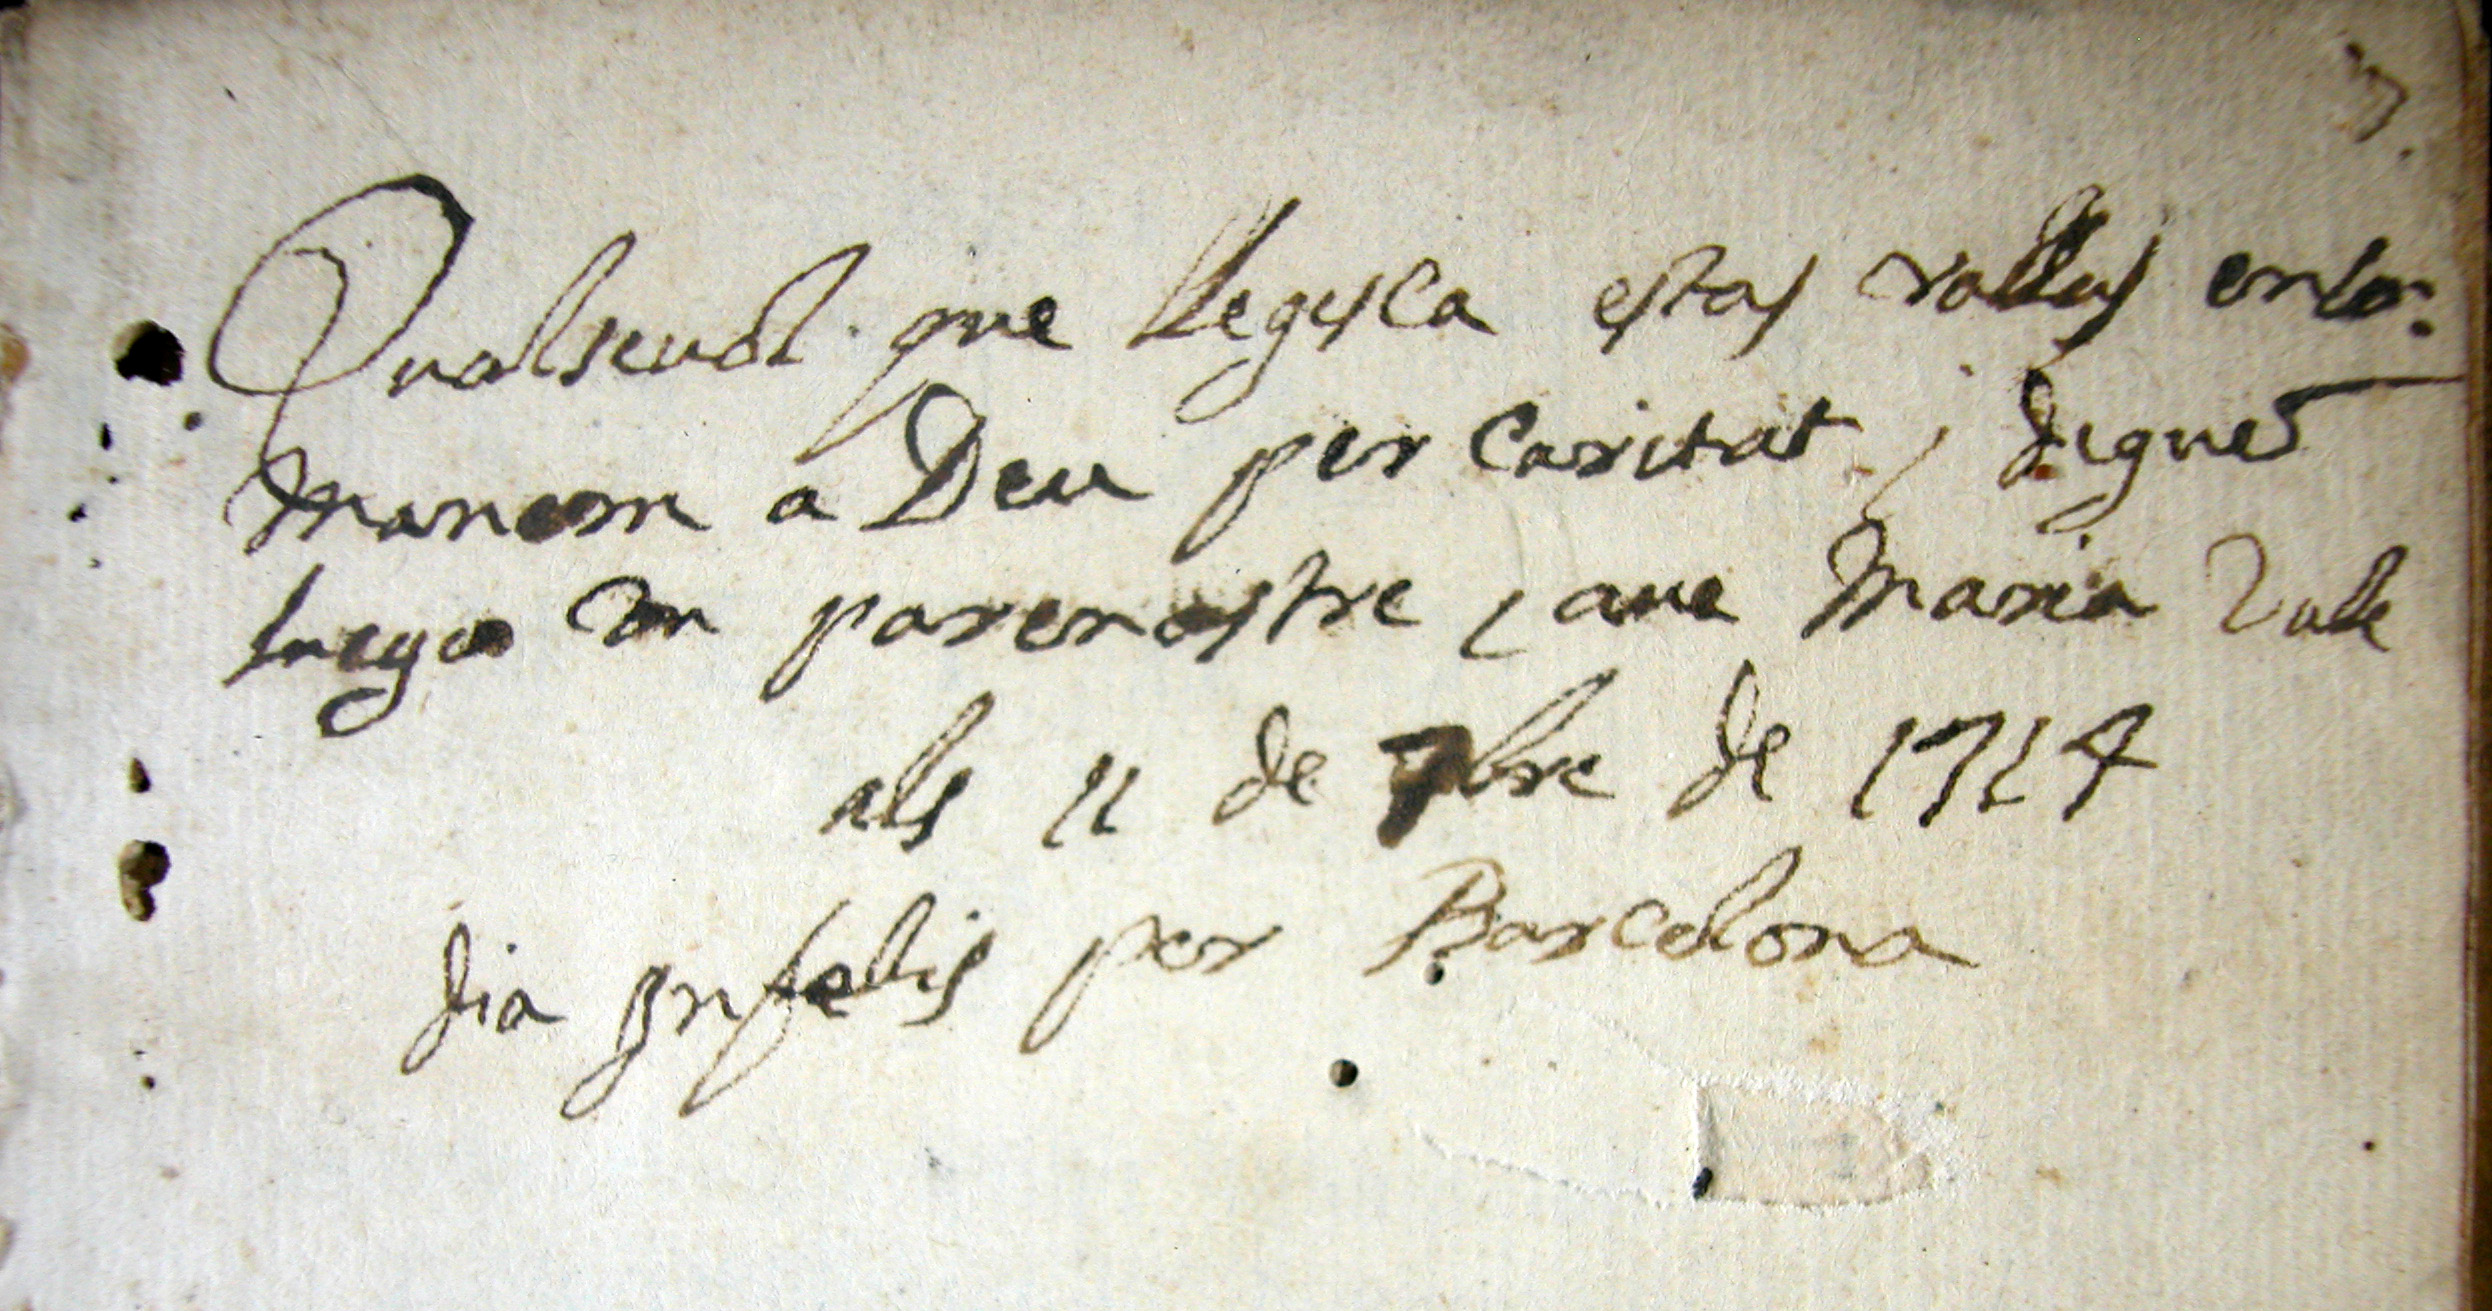 Qualsevol que llegesca estas rallas enco:
manem a Deu per caritat, i digue
luego un parenostre i ave Maria Vale
als 11 de 7bre de 1714
dia infelis per Barcelona